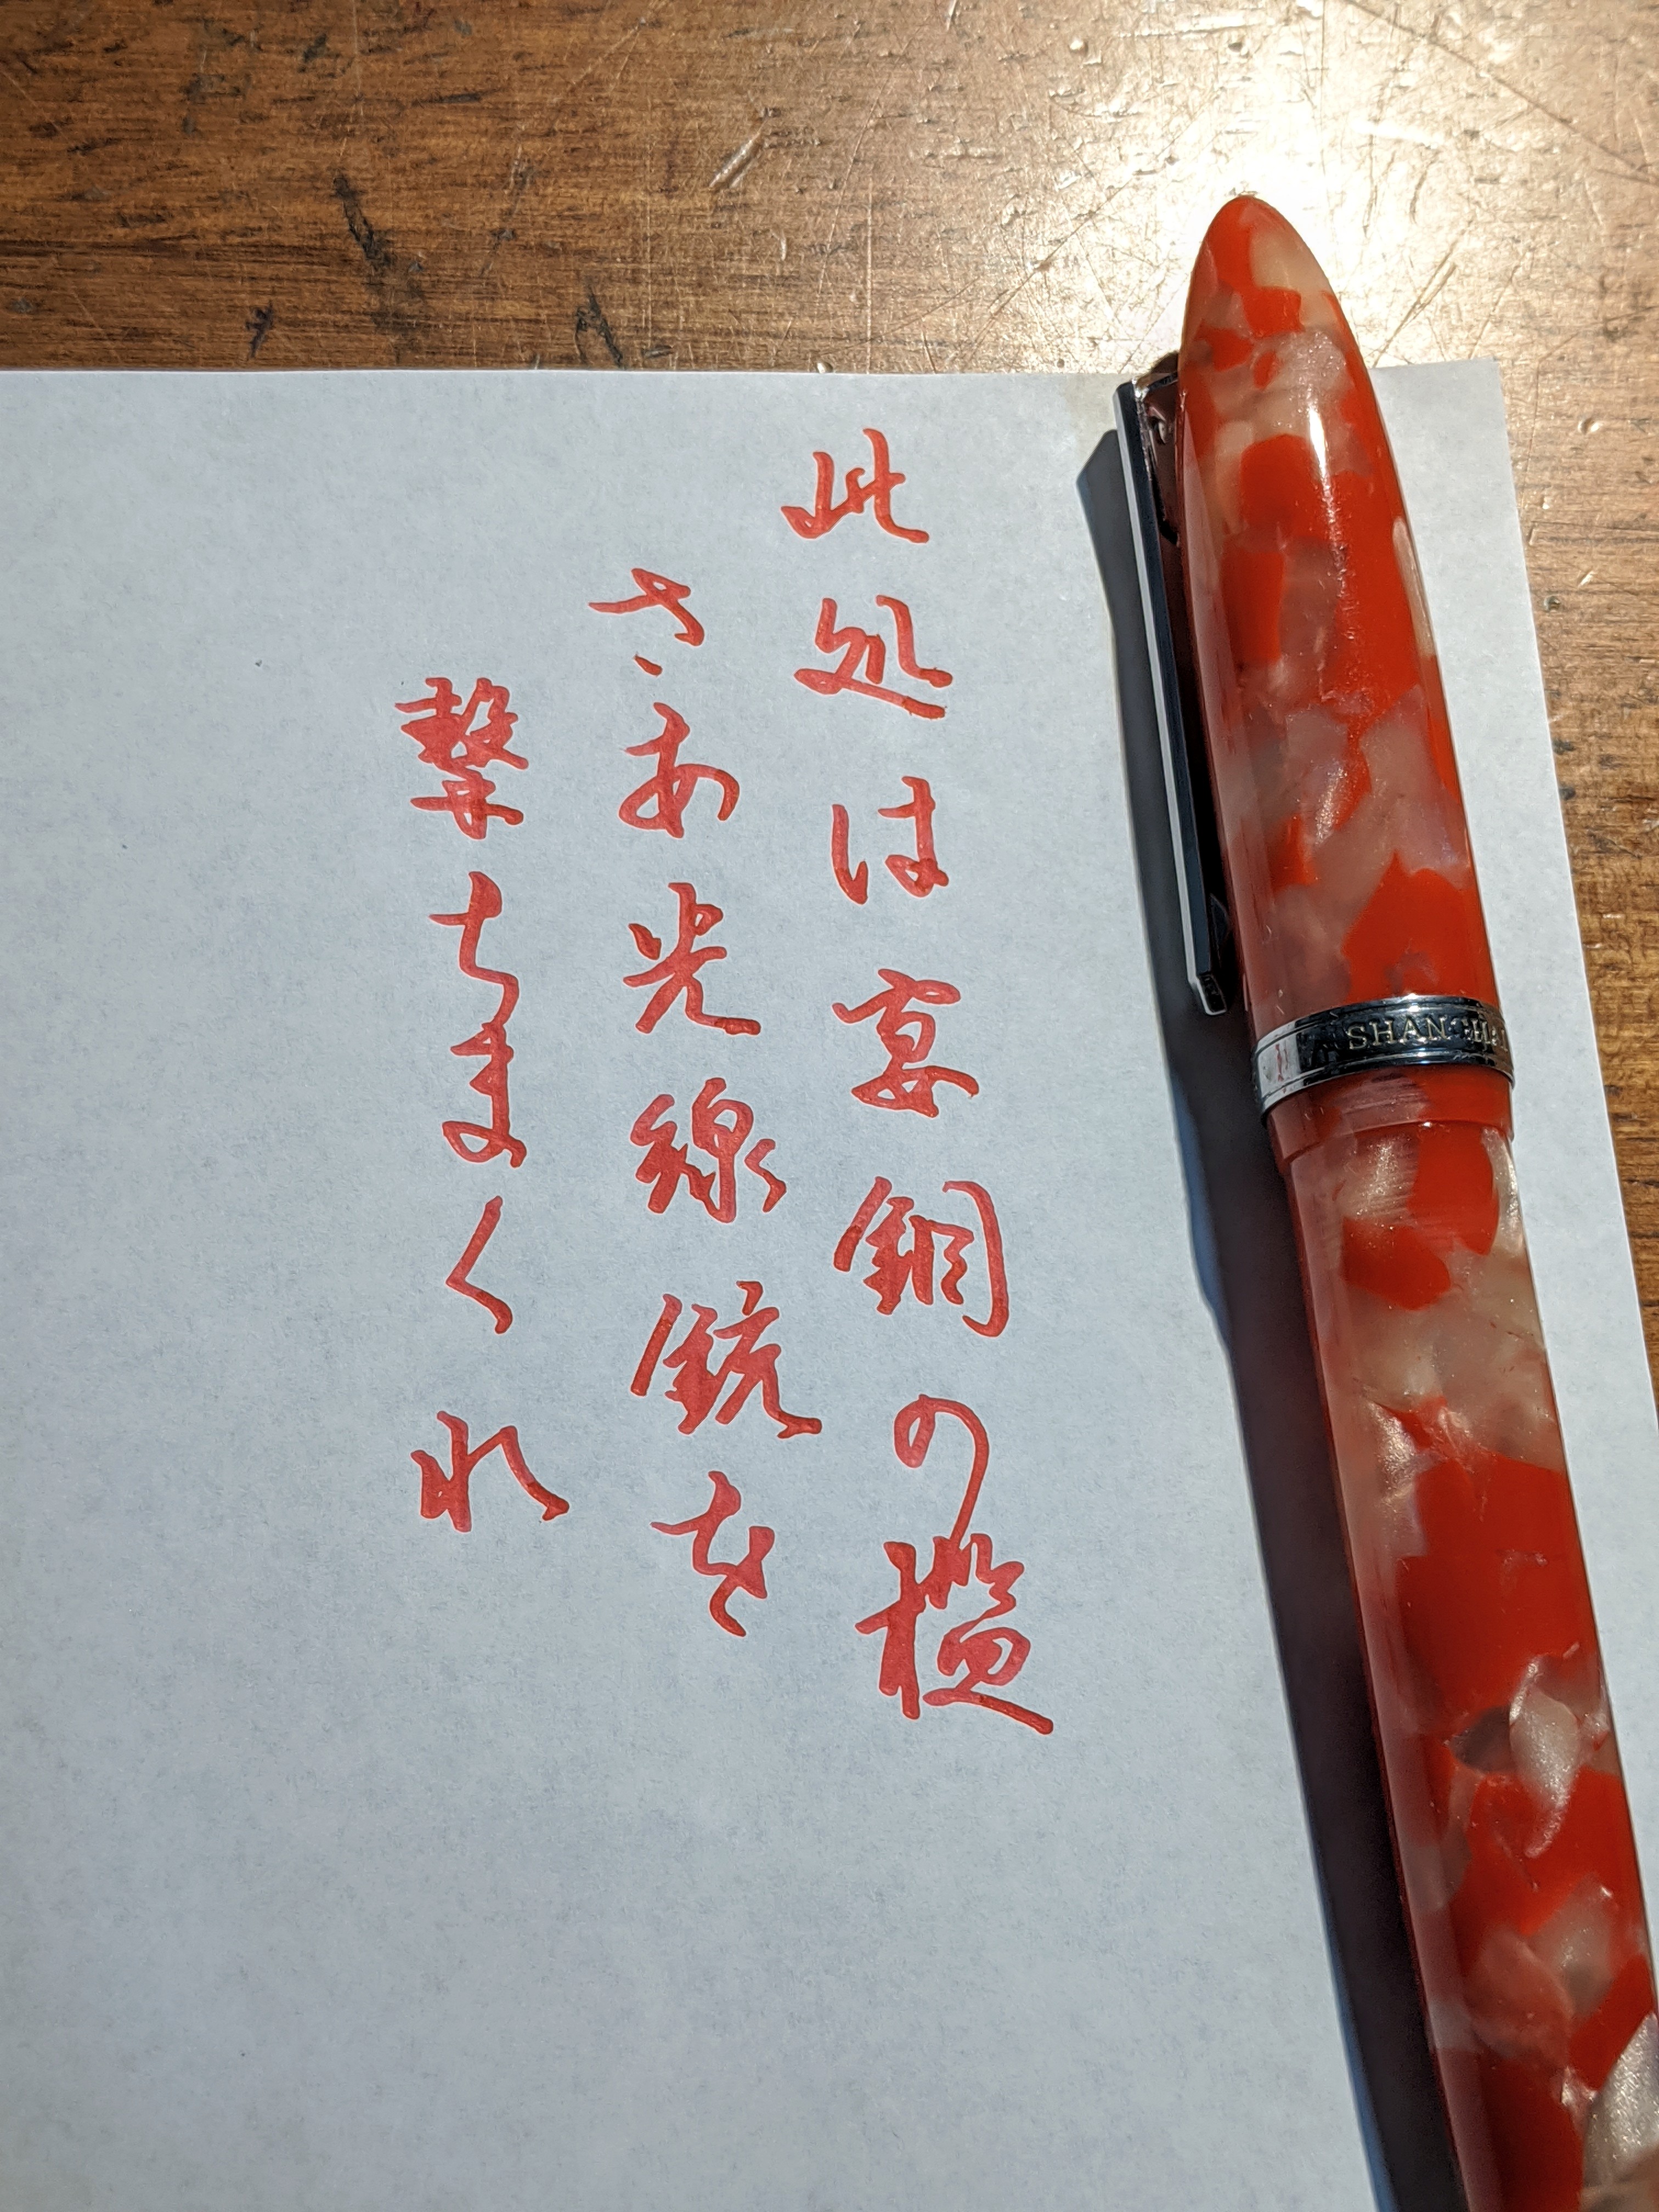 此処は宴鋼の檻
さあ光線銃を
撃ちまくれ
SHANGHAI